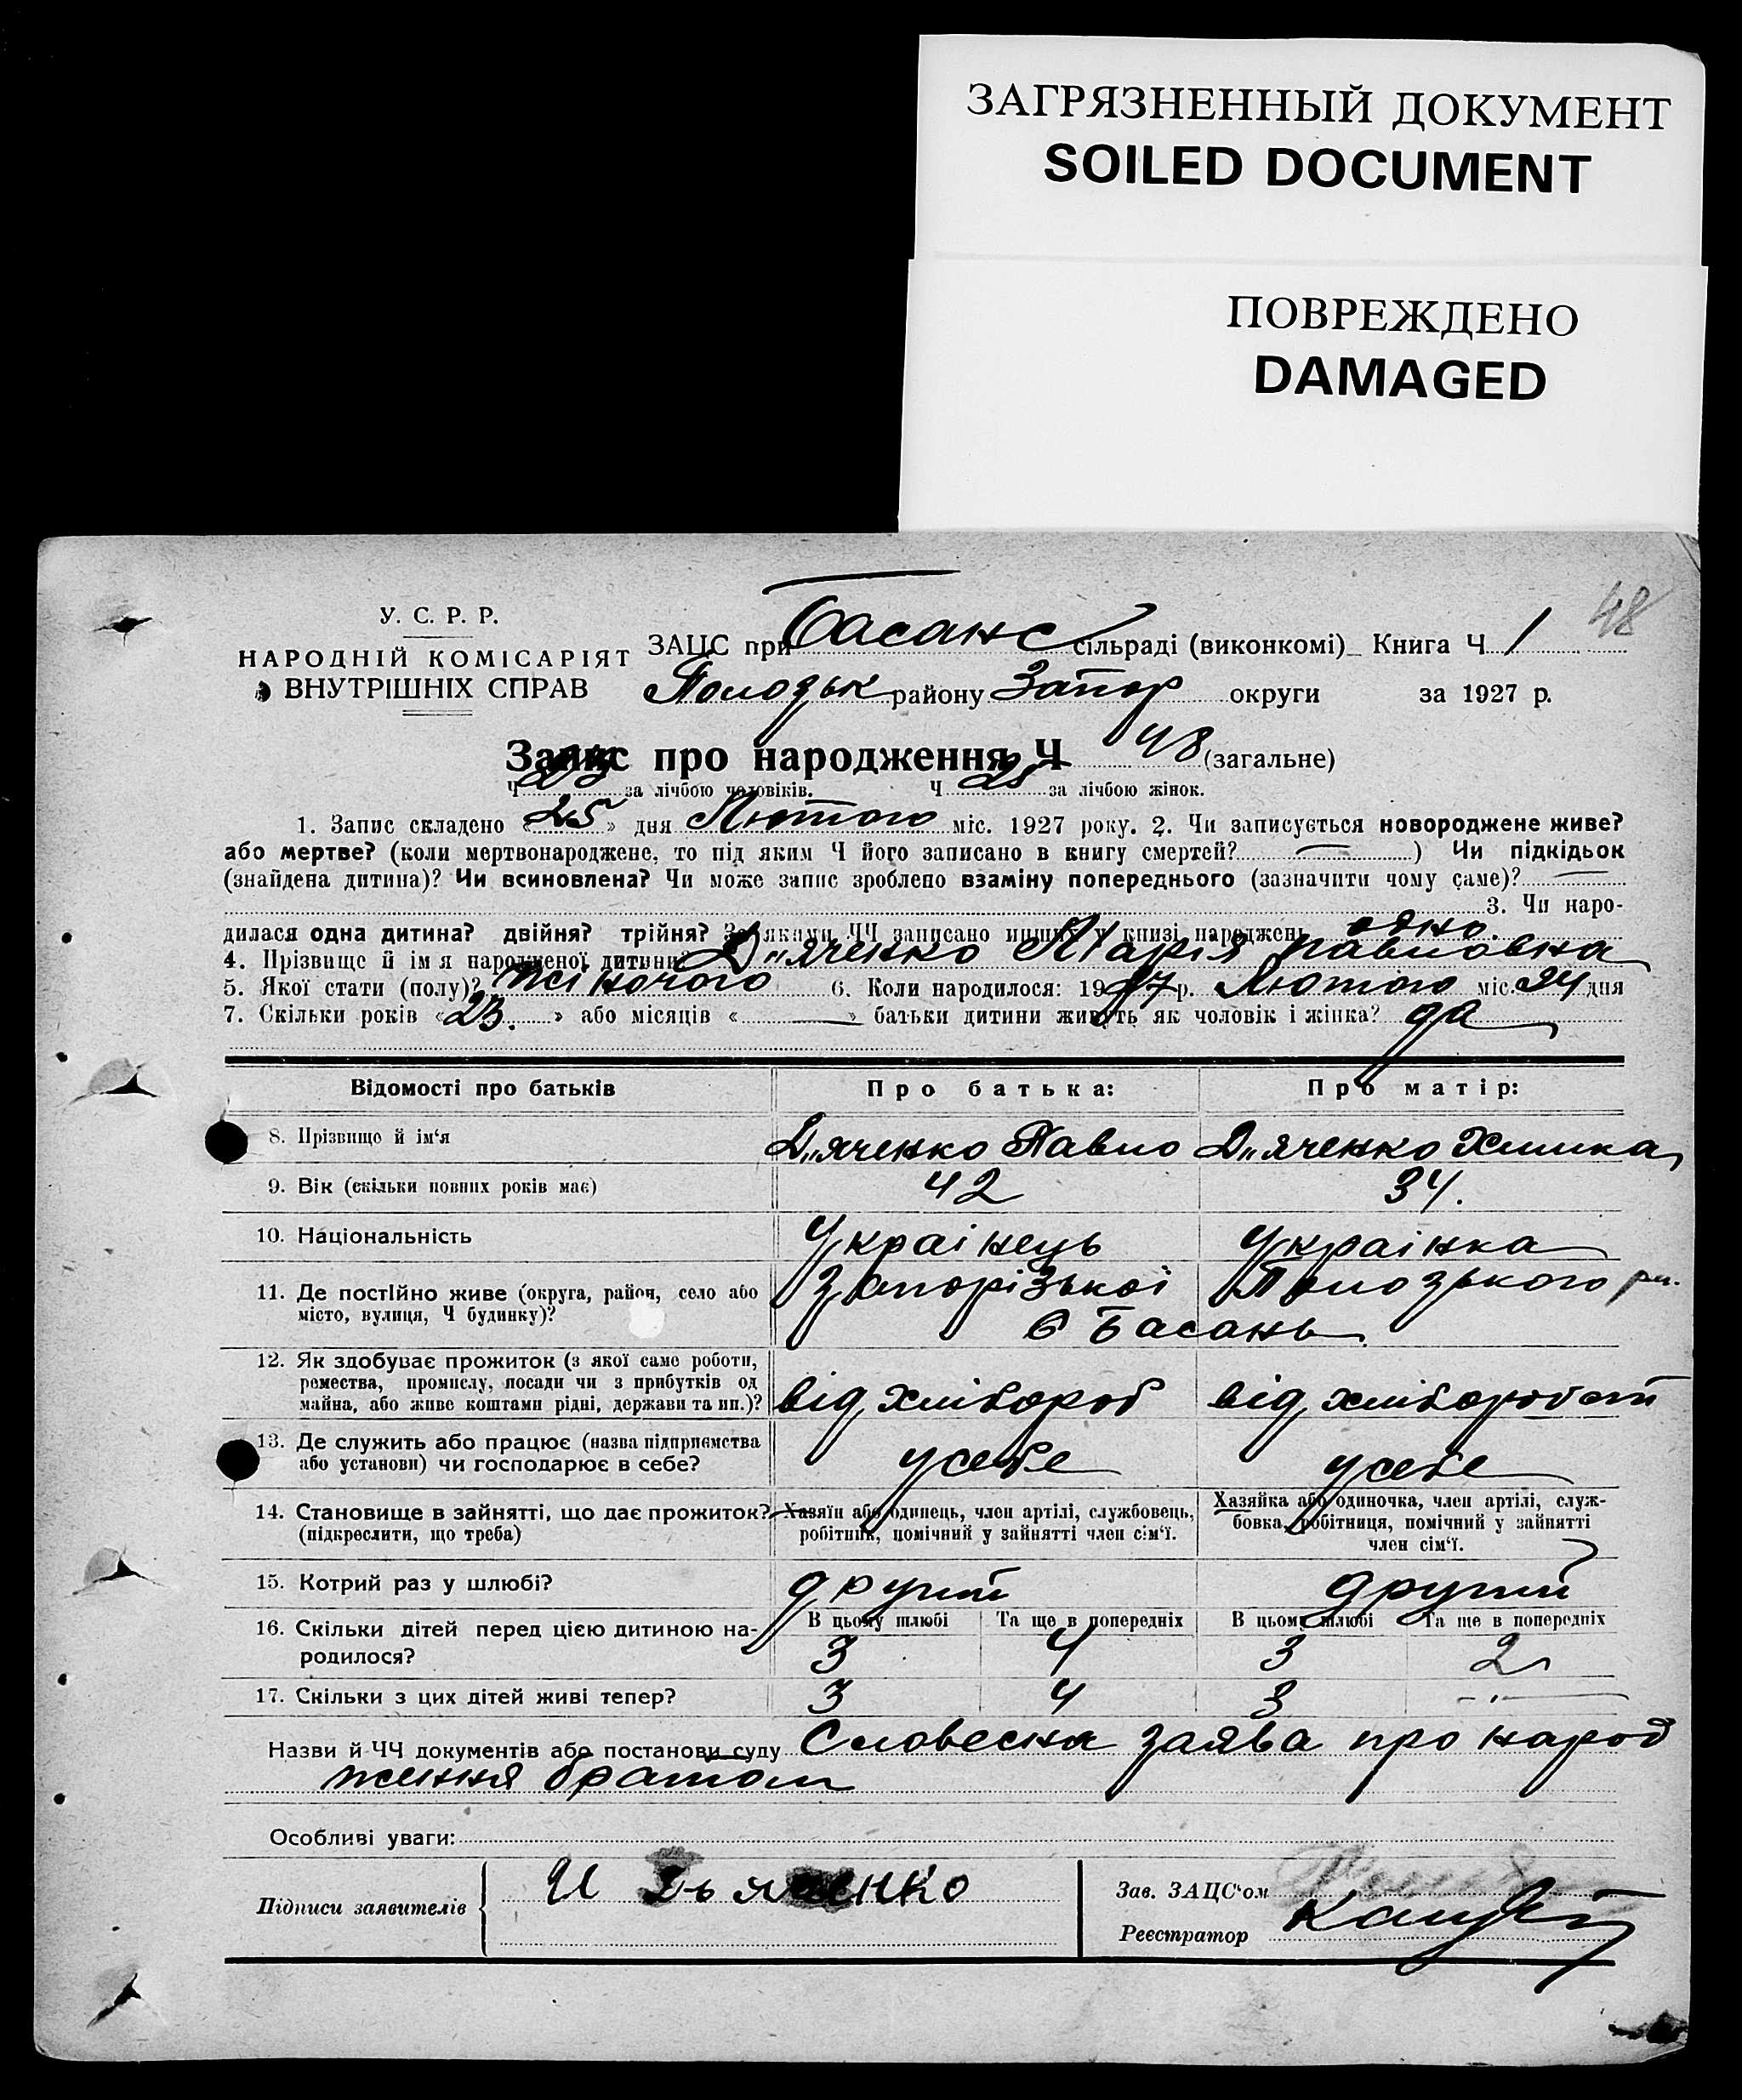 ЗАГРЯЗНЕННЫЙ ДОКУМЕНТ
SOILED DOCUMENT
ПОВРЕЖДЕНО
DAMAGED
48
У. С. Р. Р.
НАРОДНІЙ КОМІСАРІЯТ
ВНУТРІШНІХ СПРАВ
ЗАЦС при Басанс сільраді (виконкомі) Книга Ч 1
Пологзьк району Запор округи за 1927 р.
Запис про народження Ч 48 (загальне)
Ч 23 за лічбою чоловіків. Ч 25 за лічбою жінок.
1. Запис складено « 25 » дня Лютого міс. 1927 року. 2. Чи записується новороджене живе?
або мертве? (коли мертвонароджене, то під яким Ч його записано в книгу смертей? —) Чи підкідьок
(знайдена дитина)? Чи всиновлена? Чи може запис зроблено взаміну попереднього (зазначити чому саме)? —
3. Чи наро-
дилася одна дитина? двійня? трійня? За якими ЧЧ записано инших у книзі народжень одно.
4. Прізвище й ім я народженої дитини? Д"яченко Марія Павловна
5. Якої стати (полу)? жіночого 6. Коли народилося: 1927 р. Лютого міс. 24 дня
7. Скільки років « 23. » або місяців « — » батьки дитини живуть як чоловік і жінка? да
Відомості про батьків Про батька: Про матір:
8. Прізвище й ім‘я Д"яченко Павло Д"яченко Химка
9. Вік (скільки повних років має) 42 34.
10. Національність Украінець Украінка
11. Де постійно живе (округа, район, село або місто, вулиця, Ч будинку)? Запорізької Пологзького рн.
С Басань
12. Як здобуває прожиток (з якої саме роботи,
ремества, промислу, посади чи з прибутків од
майна, або живе коштами рідні, держави та ин.)? від хлібороб від хліборобст
13. Де служить або працює (назва підприємства
або установи) чи господарює в себе? усебе усебе
14. Становище в зайнятті, що дає прожиток?
(підкреслити, що треба)
Хазяїн або одинець, член артілі, службовець,
робітник, помічний у зайнятті член сім‘ї.
Хазяйка або одиночка, член артілі, служ-
бовка, робітниця, помічний у зайнятті
член сім‘ї.
15. Котрий раз у шлюбі? другий другий
16. Скільки дітей перед цією дитиною на-
родилося?
В цьому шлюбі Та ще в попередніх В цьому шлюбі Та ще в попередніх
3 4 3 2
17. Скільки з цих дітей живі тепер? 3 4 3 —
Назви й ЧЧ документів або постанови суду Словесна заява про народ
ження братом
Особливі уваги:
Підписи заявителів И Дьяченко
Зав. ЗАЦС‘ом
Реєстратор